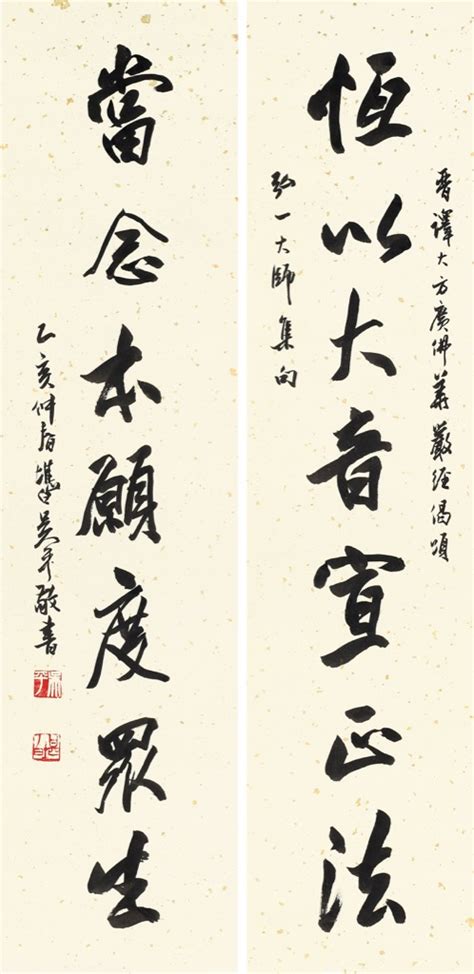 晉譯大方廣佛華嚴經偈頌
恆以大音宣正法
弘一大師集句
當念本願度眾生
乙亥仲春吴平敬書